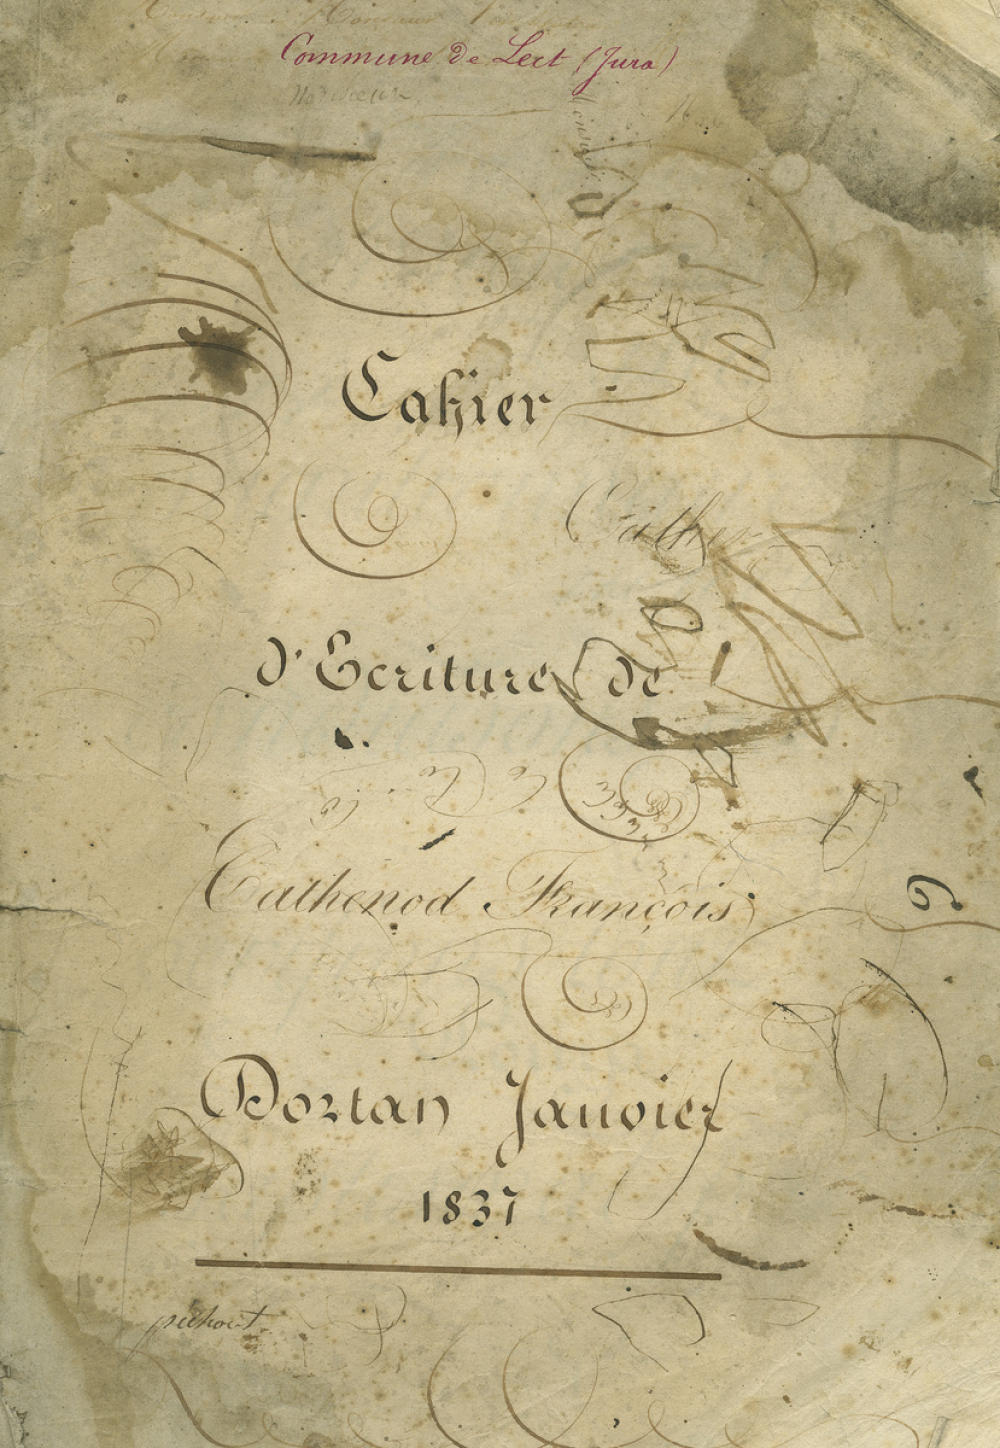 Commune de Lect (Jura)
Monsieur
Cahier
Cathe
d'Ecriture de
Cathenod François
Dortan Janvier
1837